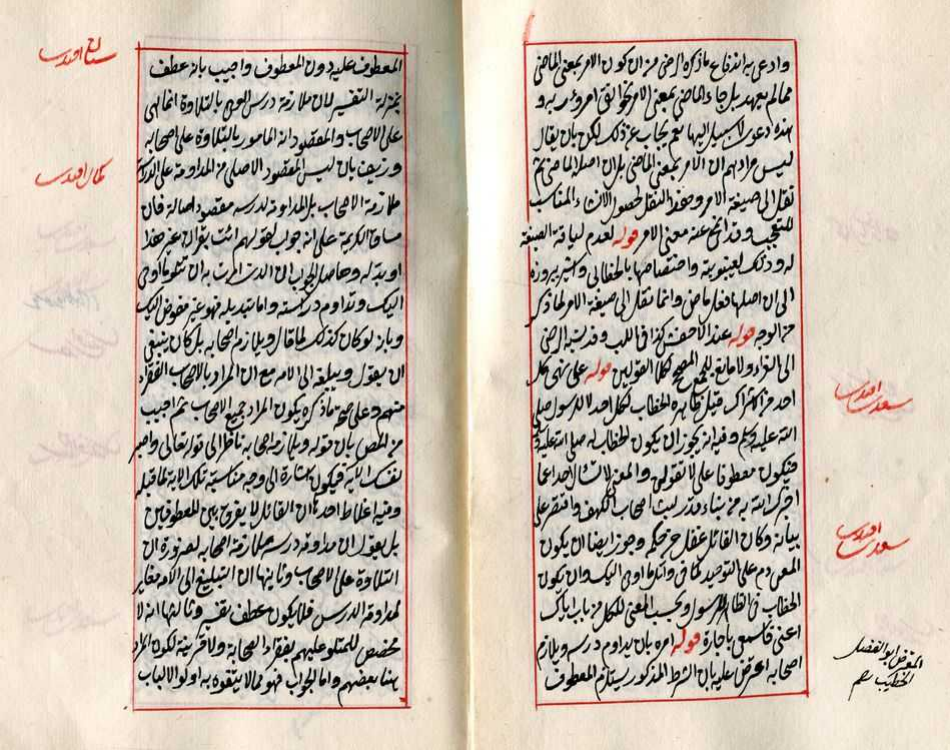 وادعى به اندفاع ما ذكره الرضى من ان كون الامر بمعنى الماضى
مما لم يعهد بل جاء الماضى بمعنى الامر نحو اتقى امرؤ ربه و
هذه دعوى لا سبيل اليها نعم يجاب عن ذلك لكن بان يقال
ليس مرادهم ان الامر بمعنى الماضى بل ان اصله الماضى ثم
نقل الى صيغة الامر وهذا النقل لحصول الانشاء المناسب
للتعجب وقد انمحى عنه معنى الامر قوله لعدم لياقة الصيغة
له وذلك لغيبوبته واختصاصها بالخطاب واكثر بروزه
الى ان اصلها فعل ماض وانما نقل الى صيغة الامر لما ذكر
من الوجه قوله عند الاخفش كذا فى اللب وقد نسبه الرضى
الى الفراء ولا مانع للجمع كلا القولين قوله على نهى كل
احد من اشراك قيل ظاهره الخطاب لكل احد لا للرسول صلى
الله عليه وسلم وفيه انه يجوز ان يكون الخطاب له صلى الله عليه
فيكون معطوفا على لا تقولن والمعنى لا تسأل احدا عما
اخبرك الله به من نبأ قدر لبث اصحاب الكهف واقتصر على
بيانه وكأن القائل غفل عن حكم وجوز ايضا ان يكون
المعنى دم على التوحيد كما فى واتل ما اوحى اليك وان يكون
الخطاب فى الظاهر للرسول وبحسب المعنى للكل من باب اياك
اعنى فاسمعى يا جارة قوله امره بان يداوم درسه ويلازم
اصحابه اعترض عليه بان الشرط المذكور يستلزم المعطوف
سعدى افندى
سعدى افندى
المعترض ابو الفضل
الخطيب
المعطوف عليه دون المعطوف واجيب بان عطف
بمنزلة التفسير لان ملازمة درس الوحى بالتلاوة انما هى
على الاصحاب والمقصود انه المأمور بالتلاوة على اصحابه
وزيف بان ليس المقصود الاصلى من المداومة على الدراسة
ملازمة الاصحاب بل المداومة لدرسه مقصود اصالة فان
مساق الكريمة على انه جواب لقولهم ائت بقرآن غير هذا
او بدله وحاصل الجواب ان الذى امرت به ان تتلو ما اوحى
اليك وتداوم دراسته واما تبديله فهو غير مفوض اليك
وبانه لو كان كذلك لما قال ويلازم اصحابه بل كان ينبغى
ان يقول ويبلغه الى الامة مع ان المراد بالاصحاب الفقراء
منهم وعلى ما ذكره يكون المراد جميع الاصحاب ثم اجيب
عن المص بان قوله ويلازم اصحابه ناظر الى قوله تعالى واصبر
نفسك الآية فيكون اشارة الى وجه مناسبة تلك الآية لما قبله
وفيه اغلاط احدها ان القائل لا يفرق بين المعطوفين
بل يقول ان مداومة درسه ملازمة اصحابه لضرورة ان
التلاوة على الاصحاب وثانيها ان التبليغ الى الامة مغاير
لمداومة الدرس فلا يكون عطف تفسير وثالثها انه لا
مخصص للمتلو عليهم بفقراء الصحابة ولا قرينة لكون المراد
هنا بعضهم واما الجواب فهو مما لا يتفوه به اولو الالباب
سنان افندى
كمال افندى